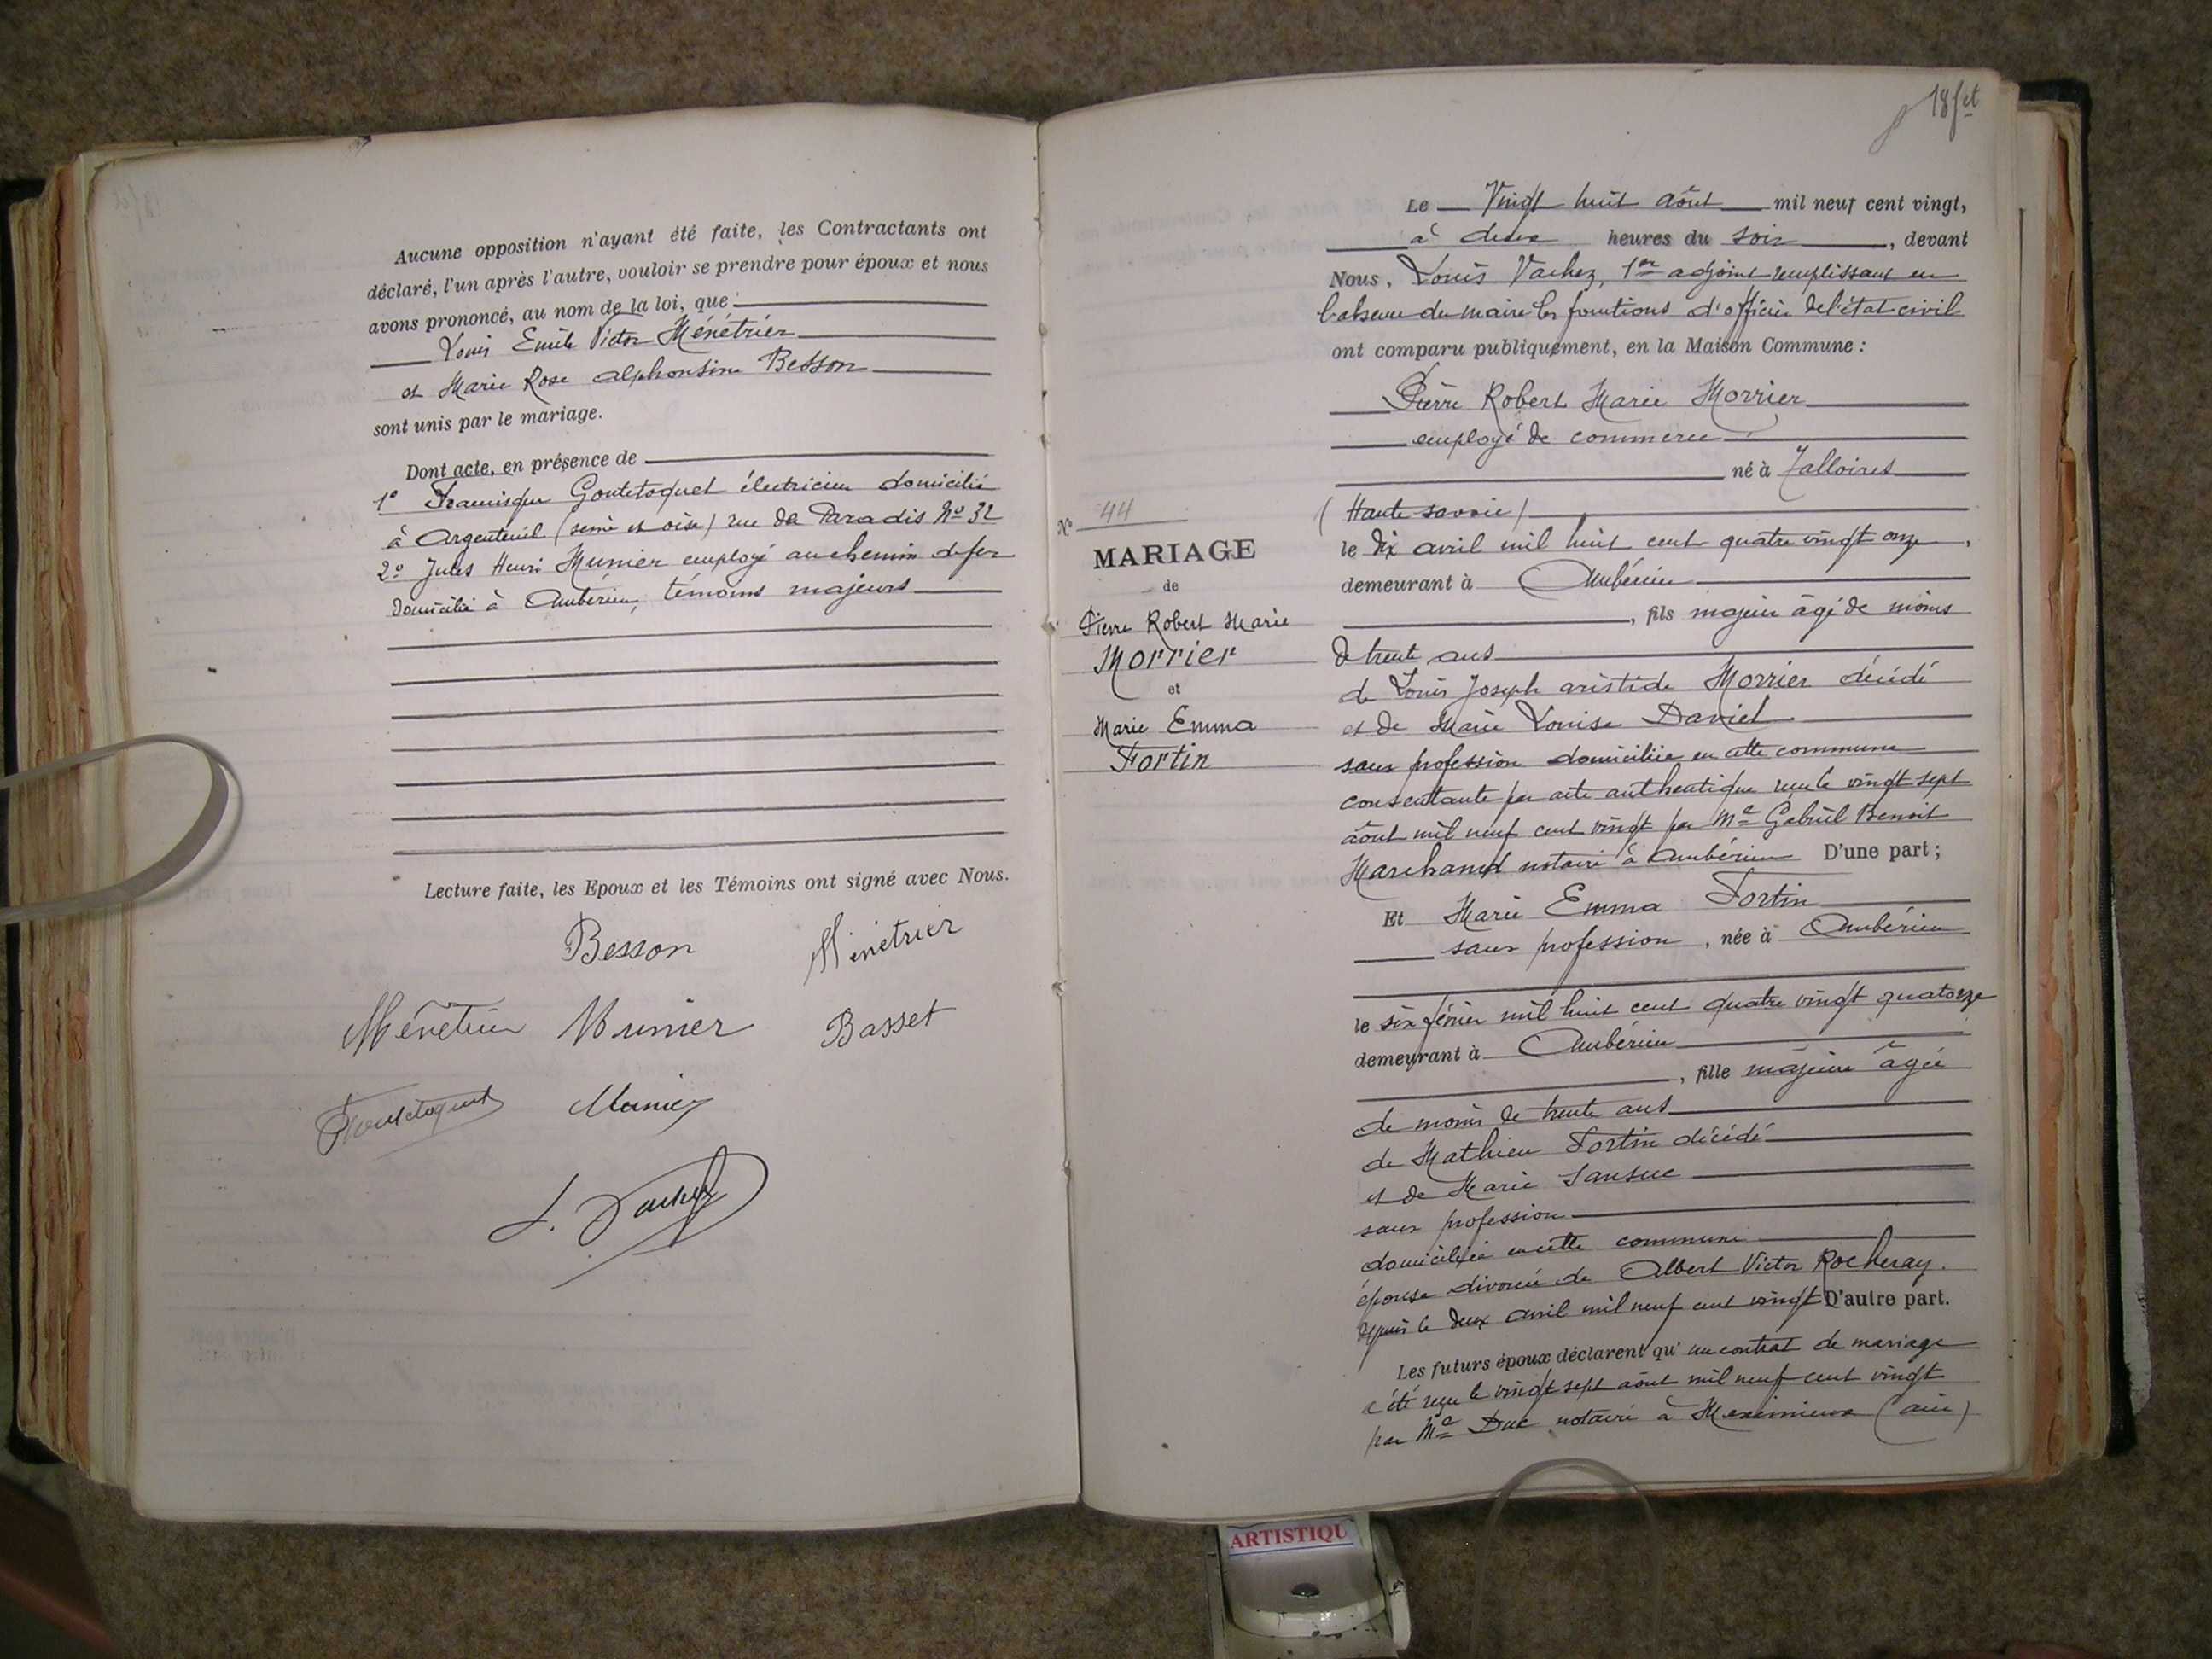 Aucune opposition n'ayant été faite, les Contractants ont
déclaré, l'un après l'autre, vouloir se prendre pour époux et nous
avons prononcé, au nom de la loi, que
Louis Emile Victor Ménétrier
et Marie Rose alphonsine Besson
sont unis par le mariage.
Dont acte, en présence de
1º Goutetoquet électricien domicilié
à Argenteuil (seine et oise) rue de Paradis Nº 32
2º Jules Henri Munier employé au chemin de fer
domicilié à Ambérieu, témoins majeurs
Lecture faite, les Epoux et les Témoins ont signé avec Nous.
Besson Ménétrier
Ménétrier Munier Basset
Goutetoquet Munier
L. Vachez
18 fet
Le Vingt huit août mil neuf cent vingt,
à deux heures du soir, devant
Nous, Louis Vachez, 1er adjoint remplissant en
l'absence du maire les fonctions d'officier de l'état civil
ont comparu publiquement, en la Maison Commune :
Pierre Robert Marie Morrier
employé de commerce
né à Talloires
(Haute savoie)
le dix avril mil huit cent quatre vingt onze,
demeurant à Ambérieu
, fils majeur âgé de moins
de trente ans
de Louis Joseph aristide Morrier décédé
et de Marie Louise Daniel
sans profession domiciliée en cette commune
consentante par acte authentique reçu le vingt sept
août mil neuf cent vingt par Me Gabriel Benoit
Marchand notaire à Ambérieu D'une part ;
Et Marie Emma Fortin
sans profession, née à Ambérieu
le six février mil huit cent quatre vingt quatorze
demeurant à Ambérieu
, fille majeure âgée
de moins de trente ans
de Mathieu Fortin décédé
et de Marie Sansuc
sans profession
domiciliée en cette commune
épouse divorcée de Albert Victor Rocheray.
depuis le deux avril mil neuf cent vingt D'autre part.
Les futurs époux déclarent qu'un contrat de mariage
a été reçu le vingt sept août mil neuf cent vingt
par Me Duc notaire à Meximieux (ain)
Nº 44
MARIAGE
de
Pierre Robert Marie
Morrier
et
Marie Emma
Fortin
ARTISTIQU